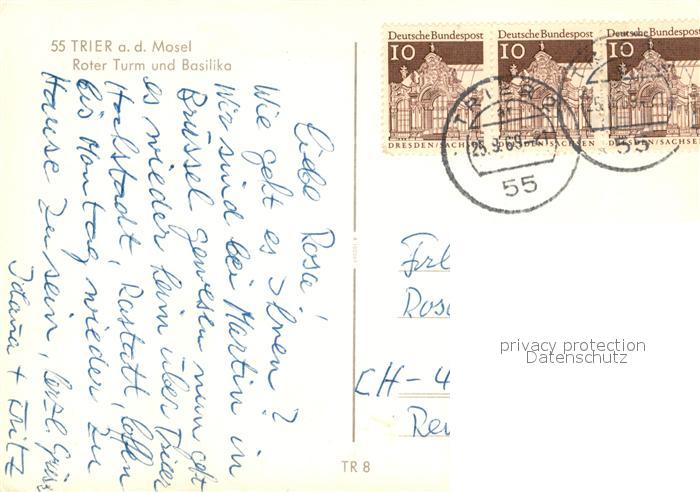 55 TRIER a. d. Mosel
Roter Turm und Basilika
Liebe Rosa!
Wie geht es Ihnen?
Wir sind bei Martin in
Brüssel gewesen nun geht
es wieder heim über Trier
Hochstadt, Rastatt, hoffen
bis Montag wieder zu
Hause zu sein, herzl. Grüsse
+ Fritz
TR 8
Deutsche Bundespost
10
DRESDEN/SACHSEN
Deutsche Bundespost
10
DRESDEN/SACHSEN
Deutsche Bundespost
10
DRESDEN/SACHSEN
TRIER
25.9.69
55
55
Frl
Rosa
CH-4
privacy protection
Datenschutz